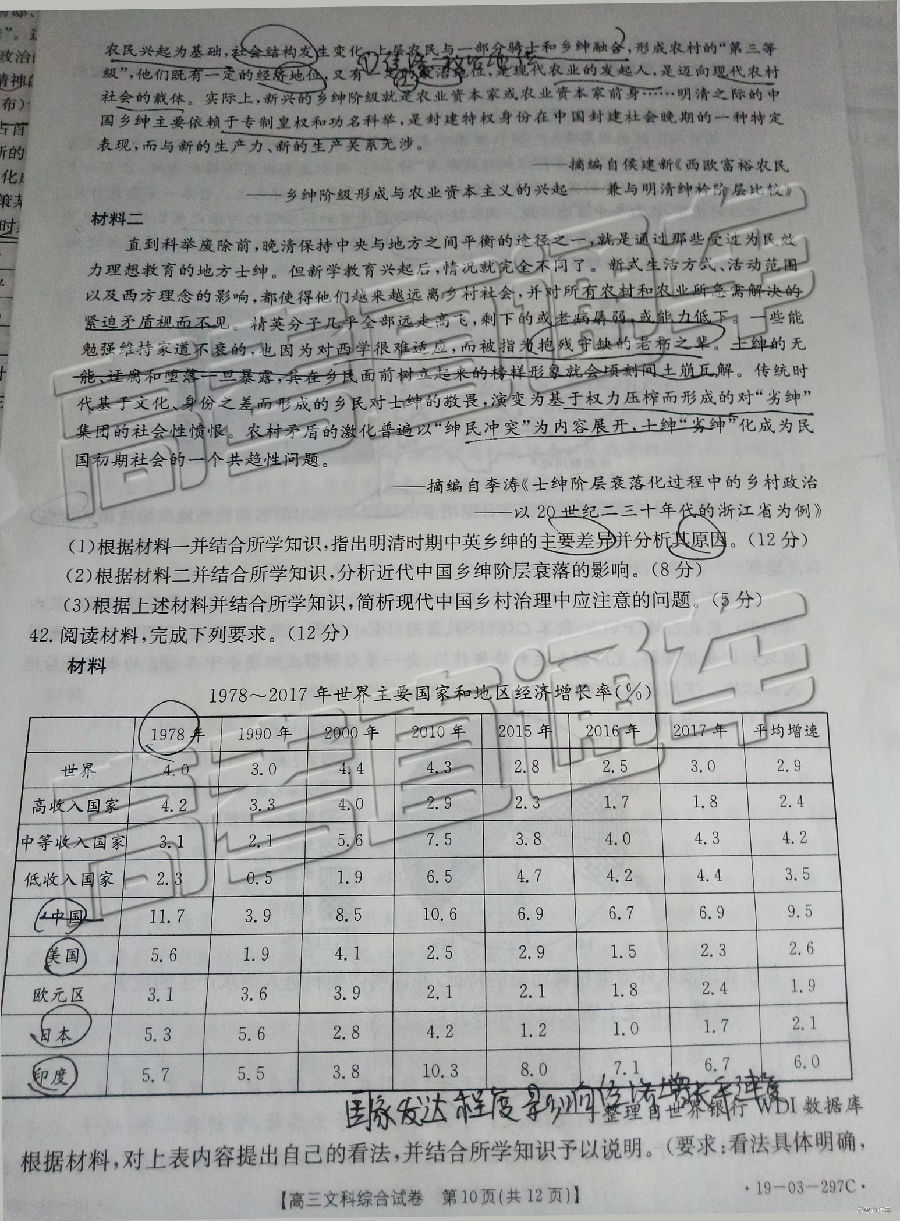 农民兴起为基础,社会结构发生变化,上层农民与一部分骑士和乡绅融合,形成农村的“第三等
级”,他们既有一定的经济地位,又有一定的政治地位,是现代农业的发起人,是迈向现代农村
社会的载体。实际上,新兴的乡绅阶级就是农业资本家或农业资本家前身……明清之际的中
国乡绅主要依赖于专制皇权和功名科举,是封建特权身份在中国封建社会晚期的一种特定
表现,而与新的生产力、新的生产关系无涉。
——摘编自侯建新《西欧富裕农民
——乡绅阶级形成与农业资本主义的兴起——兼与明清绅衿阶层比较》
材料二
直到科举废除前,晚清保持中央与地方之间平衡的途径之一,就是通过那些受过为民效
力理想教育的地方士绅。但新学教育兴起后,情况就完全不同了。新式生活方式、活动范围
以及西方理念的影响,都使得他们越来越远离乡村社会,并对所有农村和农业所急需解决的
紧迫矛盾视而不见。精英分子几乎全部远走高飞,剩下的或老病孱弱,或能力低下。一些能
勉强维持家道不衰的,也因为对西学很难适应,而被指为抱残守缺的老朽之辈。士绅的无
能、迂腐和堕落一旦暴露,其在乡民面前树立起来的榜样形象就会顷刻间土崩瓦解。传统时
代基于文化、身份之差而形成的乡民对士绅的敬畏,演变为基于权力压榨而形成的对“劣绅”
集团的社会性愤恨。农村矛盾的激化普遍以“绅民冲突”为内容展开,士绅“劣绅”化成为民
国初期社会的一个共趋性问题。
——摘编自李涛《士绅阶层衰落化过程中的乡村政治
——以20世纪二三十年代的浙江省为例》
(1)根据材料一并结合所学知识,指出明清时期中英乡绅的主要差异并分析其原因。(12分)
(2)根据材料二并结合所学知识,分析近代中国乡绅阶层衰落的影响。(8分)
(3)根据上述材料并结合所学知识,简析现代中国乡村治理中应注意的问题。(5分)
42.阅读材料,完成下列要求。(12分)
材料
1978~2017年世界主要国家和地区经济增长率(%)
1978年 1990年 2000年 2010年 2015年 2016年 2017年 平均增速
世界 4.0 3.0 4.4 4.3 2.8 2.5 3.0 2.9
高收入国家 4.2 3.3 4.0 2.9 2.3 1.7 1.8 2.4
中等收入国家 3.1 2.1 5.6 7.5 3.8 4.0 4.3 4.2
低收入国家 2.3 0.5 1.9 6.5 4.7 4.2 4.4 3.5
中国 11.7 3.9 8.5 10.6 6.9 6.7 6.9 9.5
美国 5.6 1.9 4.1 2.5 2.9 1.5 2.3 2.6
欧元区 3.1 3.6 3.9 2.1 2.1 1.8 2.4 1.9
日本 5.3 5.6 2.8 4.2 1.2 1.0 1.7 2.1
印度 5.7 5.5 3.8 10.3 8.0 7.1 6.7 6.0
国家发达程度影响经济增长速度
整理自世界银行WDI数据库
根据材料,对上表内容提出自己的看法,并结合所学知识予以说明。(要求:看法具体明确,
【高三文科综合试卷 第10页(共12页)】
·19-03-297C·
高考直通车
高考直通车